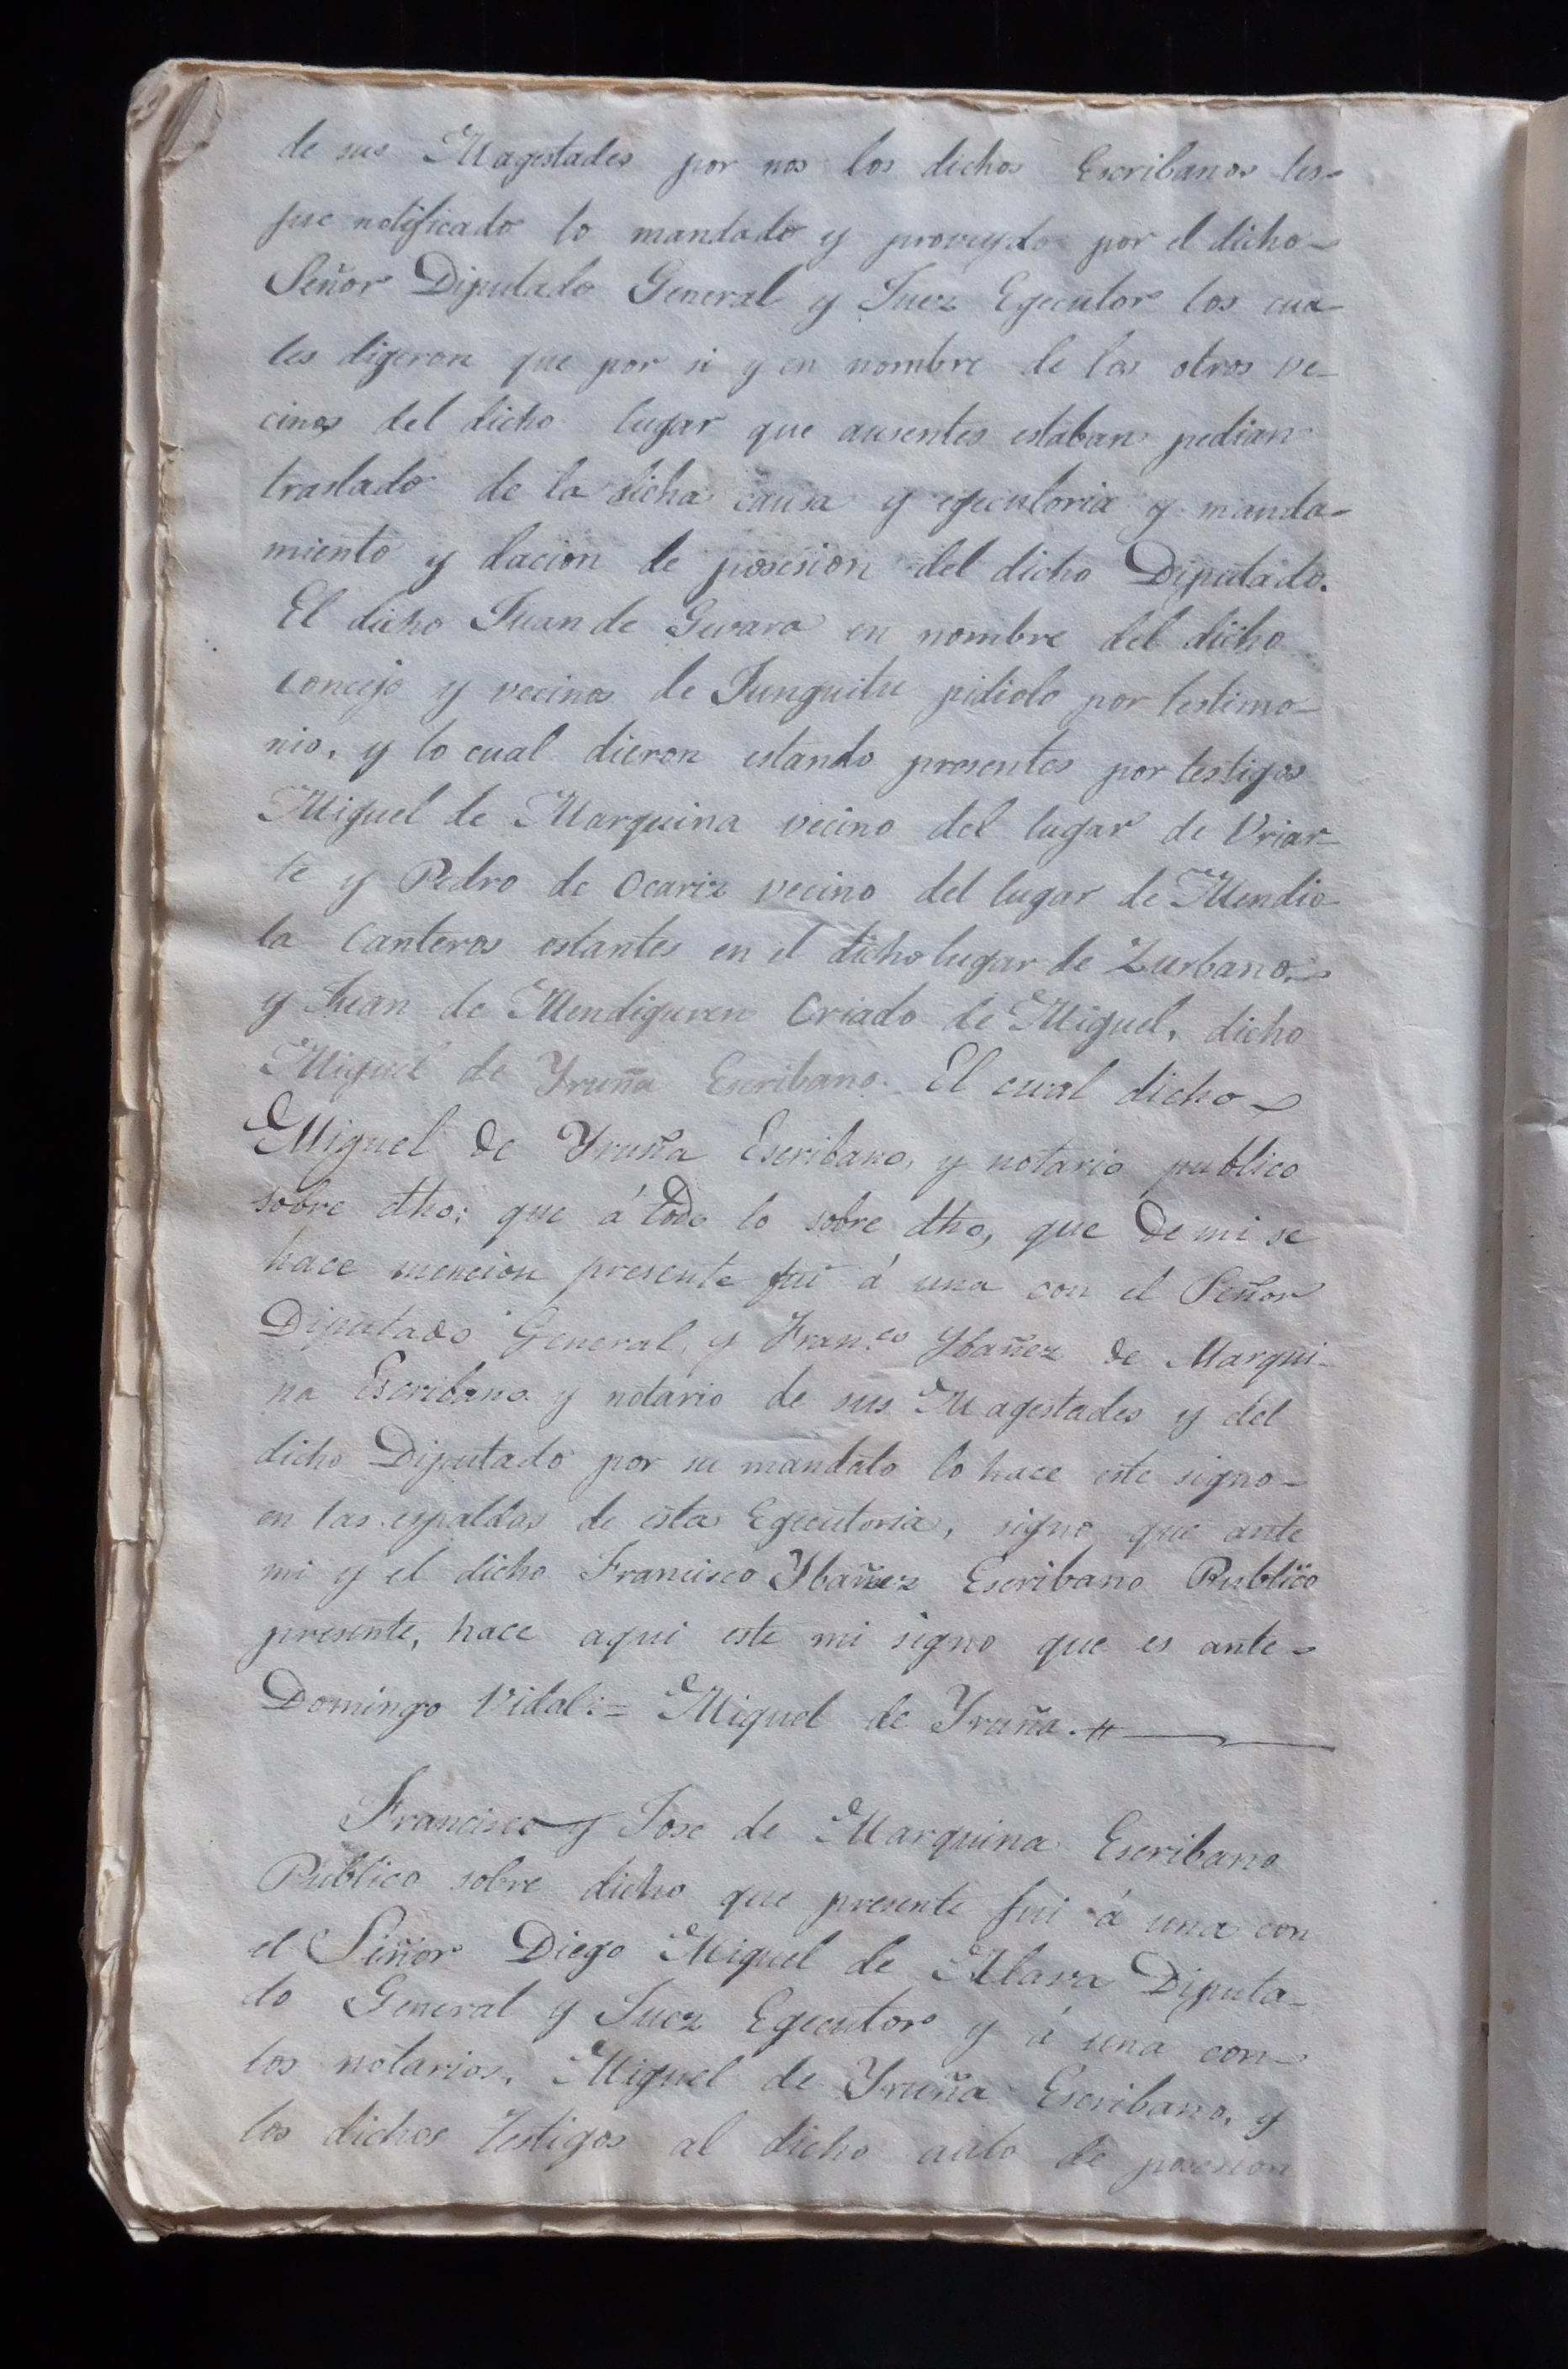 de sus Magestades por nos los dichos Escribanos les
fue notificado lo mandado y proveydo por el dicho
Señor Diputado General y Juez Egecutor los cua-
les digeron que por si y en nombre de los otros ve-
cinos del dicho lugar que ausentes estaban pedian
traslado de la dicha causa y egecutoria y manda-
miento y dacion de posesion del dicho Diputado.
El dicho Juan de Gevara en nombre del dicho
concejo y vecinos de Junguitu pidiolo por testimo-
nio, y lo cual dieron estando presentes por testigos
Miguel de Marquina vecino del lugar de Vriar-
te y Pedro de Ocariz vecino del lugar de Mendio-
la Canteros estantes en el dicho lugar de Zurbano,
y Juan de Mendiguren Criado de Miguel, dicho
Miguel de Yruña Escribano. El cual dicho
Miguel de Yruña Escribano, y notario publico
sobre dho; que á todo lo sobre dho, que de mi se
hace mencion presente fui á una con el Señor
Diputado General, y Fran.co Ybañez de Marqui-
na Escribano y notario de sus Magestades y del
dicho Diputado por su mandato lo hace este signo
en las espaldas de esta Egecutoria, signo que ante
mi y el dicho Francisco Ybañez Escribano Publico
presente, hace aqui este mi signo que es ante
Domingo Vidal:= Miguel de Yruña.
Francisco y Jose de Marquina Escribano
Publico sobre dicho que presente fui á una con
el Señor Diego Miguel de Alava Diputa-
do General y Juez Egecutor y á una con
los notarios, Miguel de Yruña Escribano, y
los dichos Testigos al dicho auto de posesion